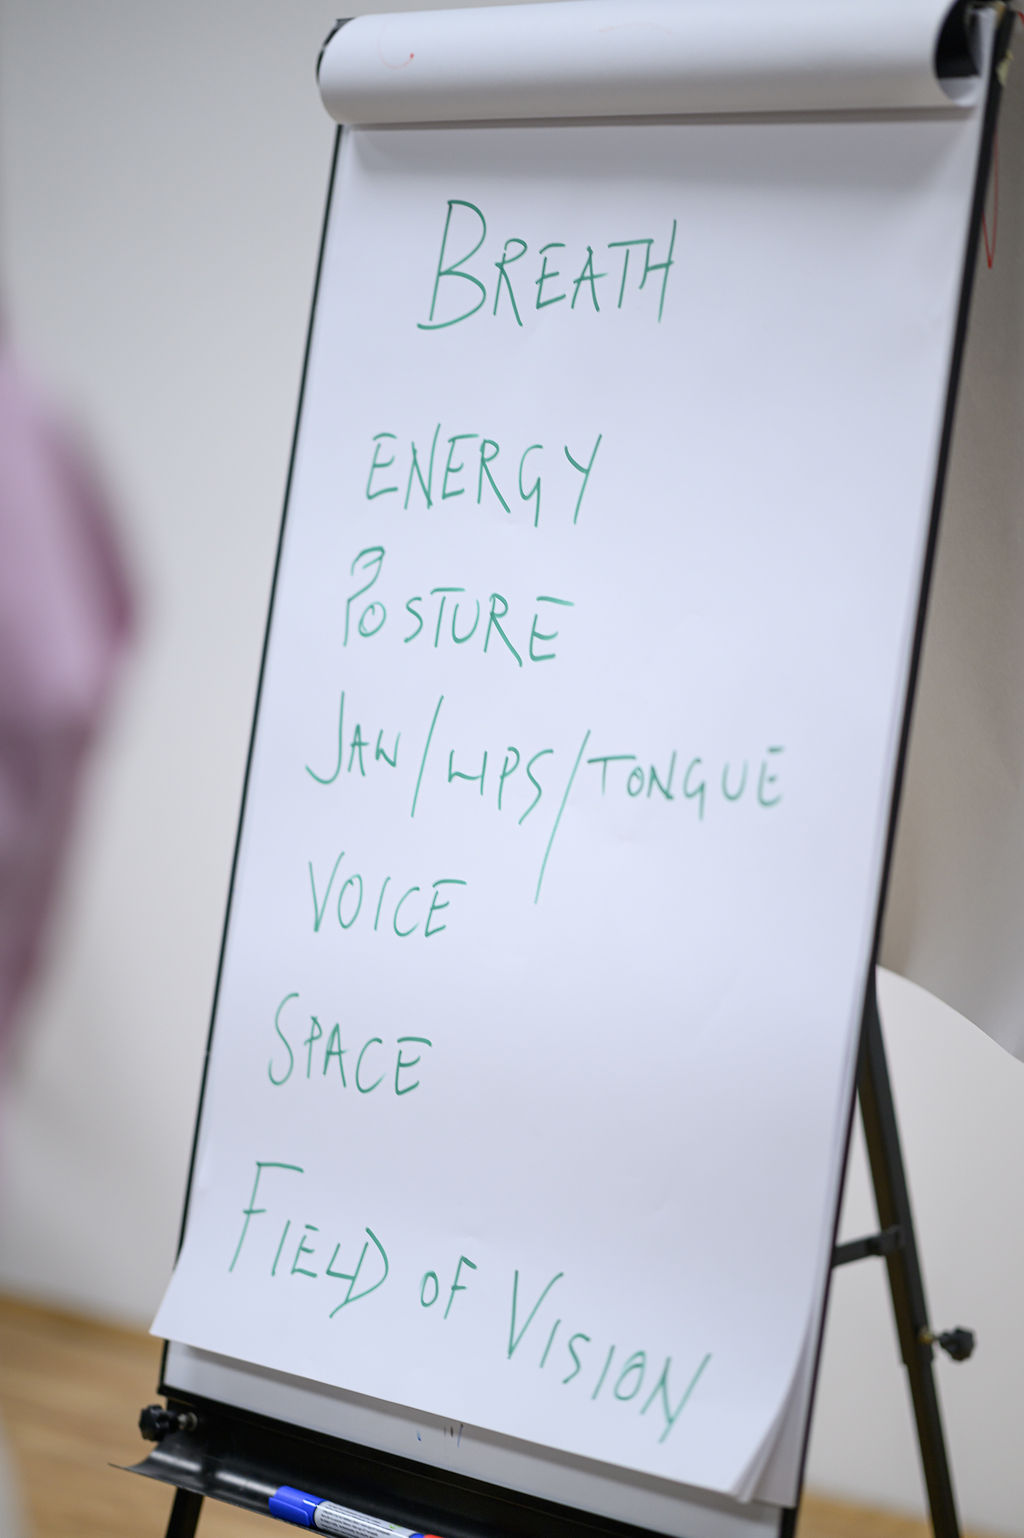 BREATH
ENERGY
POSTURE
JAW/LIPS/TONGUE
VOICE
SPACE
FIELD OF VISION